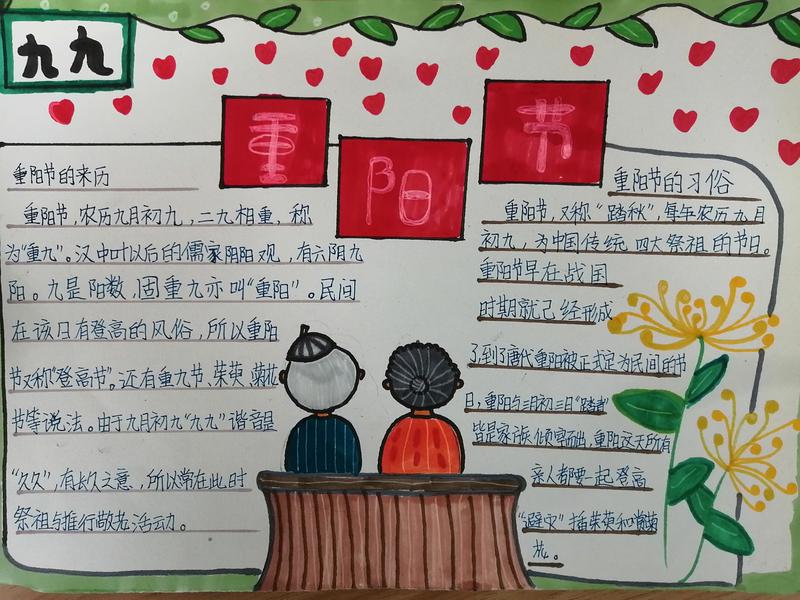 九九
重
阳
节
重阳节的来历
重阳节，农历九月初九，二九相重，称
为“重九”。汉中叶以后的儒家阴阳观，有六阴九
阳。九是阳数，固重九亦叫“重阳”。民间
在该日有登高的风俗，所以重阳
节又称“登高节”。还有重九节、茱萸、菊花
节等说法。由于九月初九“九九”谐音是
“久久”，有长久之意，所以常在此时
祭祖与推行敬老活动。
重阳节的习俗
重阳节，又称“踏秋”，每年农历九月
初九，为中国传统四大祭祖的节日。
重阳节早在战国
时期就已经形成
了，到了唐代重阳被正式定为民间的节
日，重阳与三月初三日“踏春”
皆是家族倾室而出，重阳这天所有
亲人都要一起登高
“避灾”插茱萸和赏菊
花。